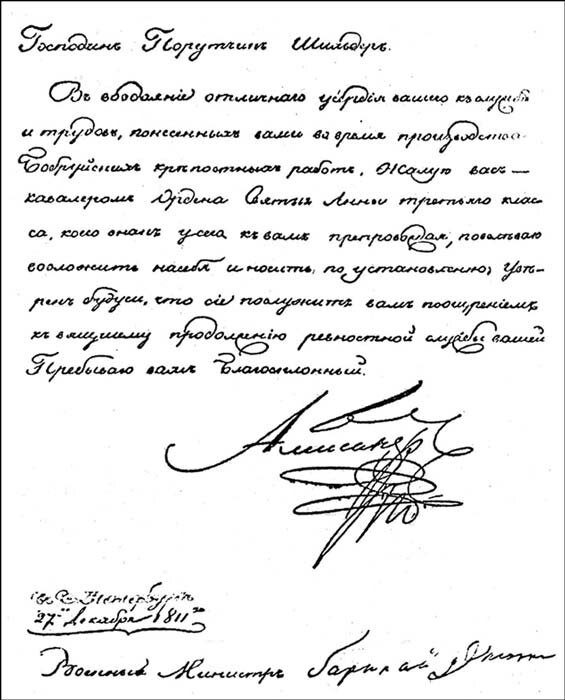 Господинъ Порутчикъ Шильдеръ.
Въ воздаяніе отличнаго усердія вашего къ службѣ
и трудовъ, понесенныхъ вами во время производства
Бобруйскихъ крѣпостныхъ работъ, Жалую васъ —
кавалеромъ Ордена Святыя Анны третьяго клас-
са, коего знакъ у сего къ вамъ препровождая, повелѣваю
возложить на себя и носить по установленію; Увѣ-
ренъ будучи, что сіе послужитъ вамъ поощреніемъ
къ вящшему продолженію ревностной службы вашей
Пребываю вамъ Благосклонный.
Александръ
въ С. Петербургѣ
27го декабря 1811го
Военный Министръ Барклай